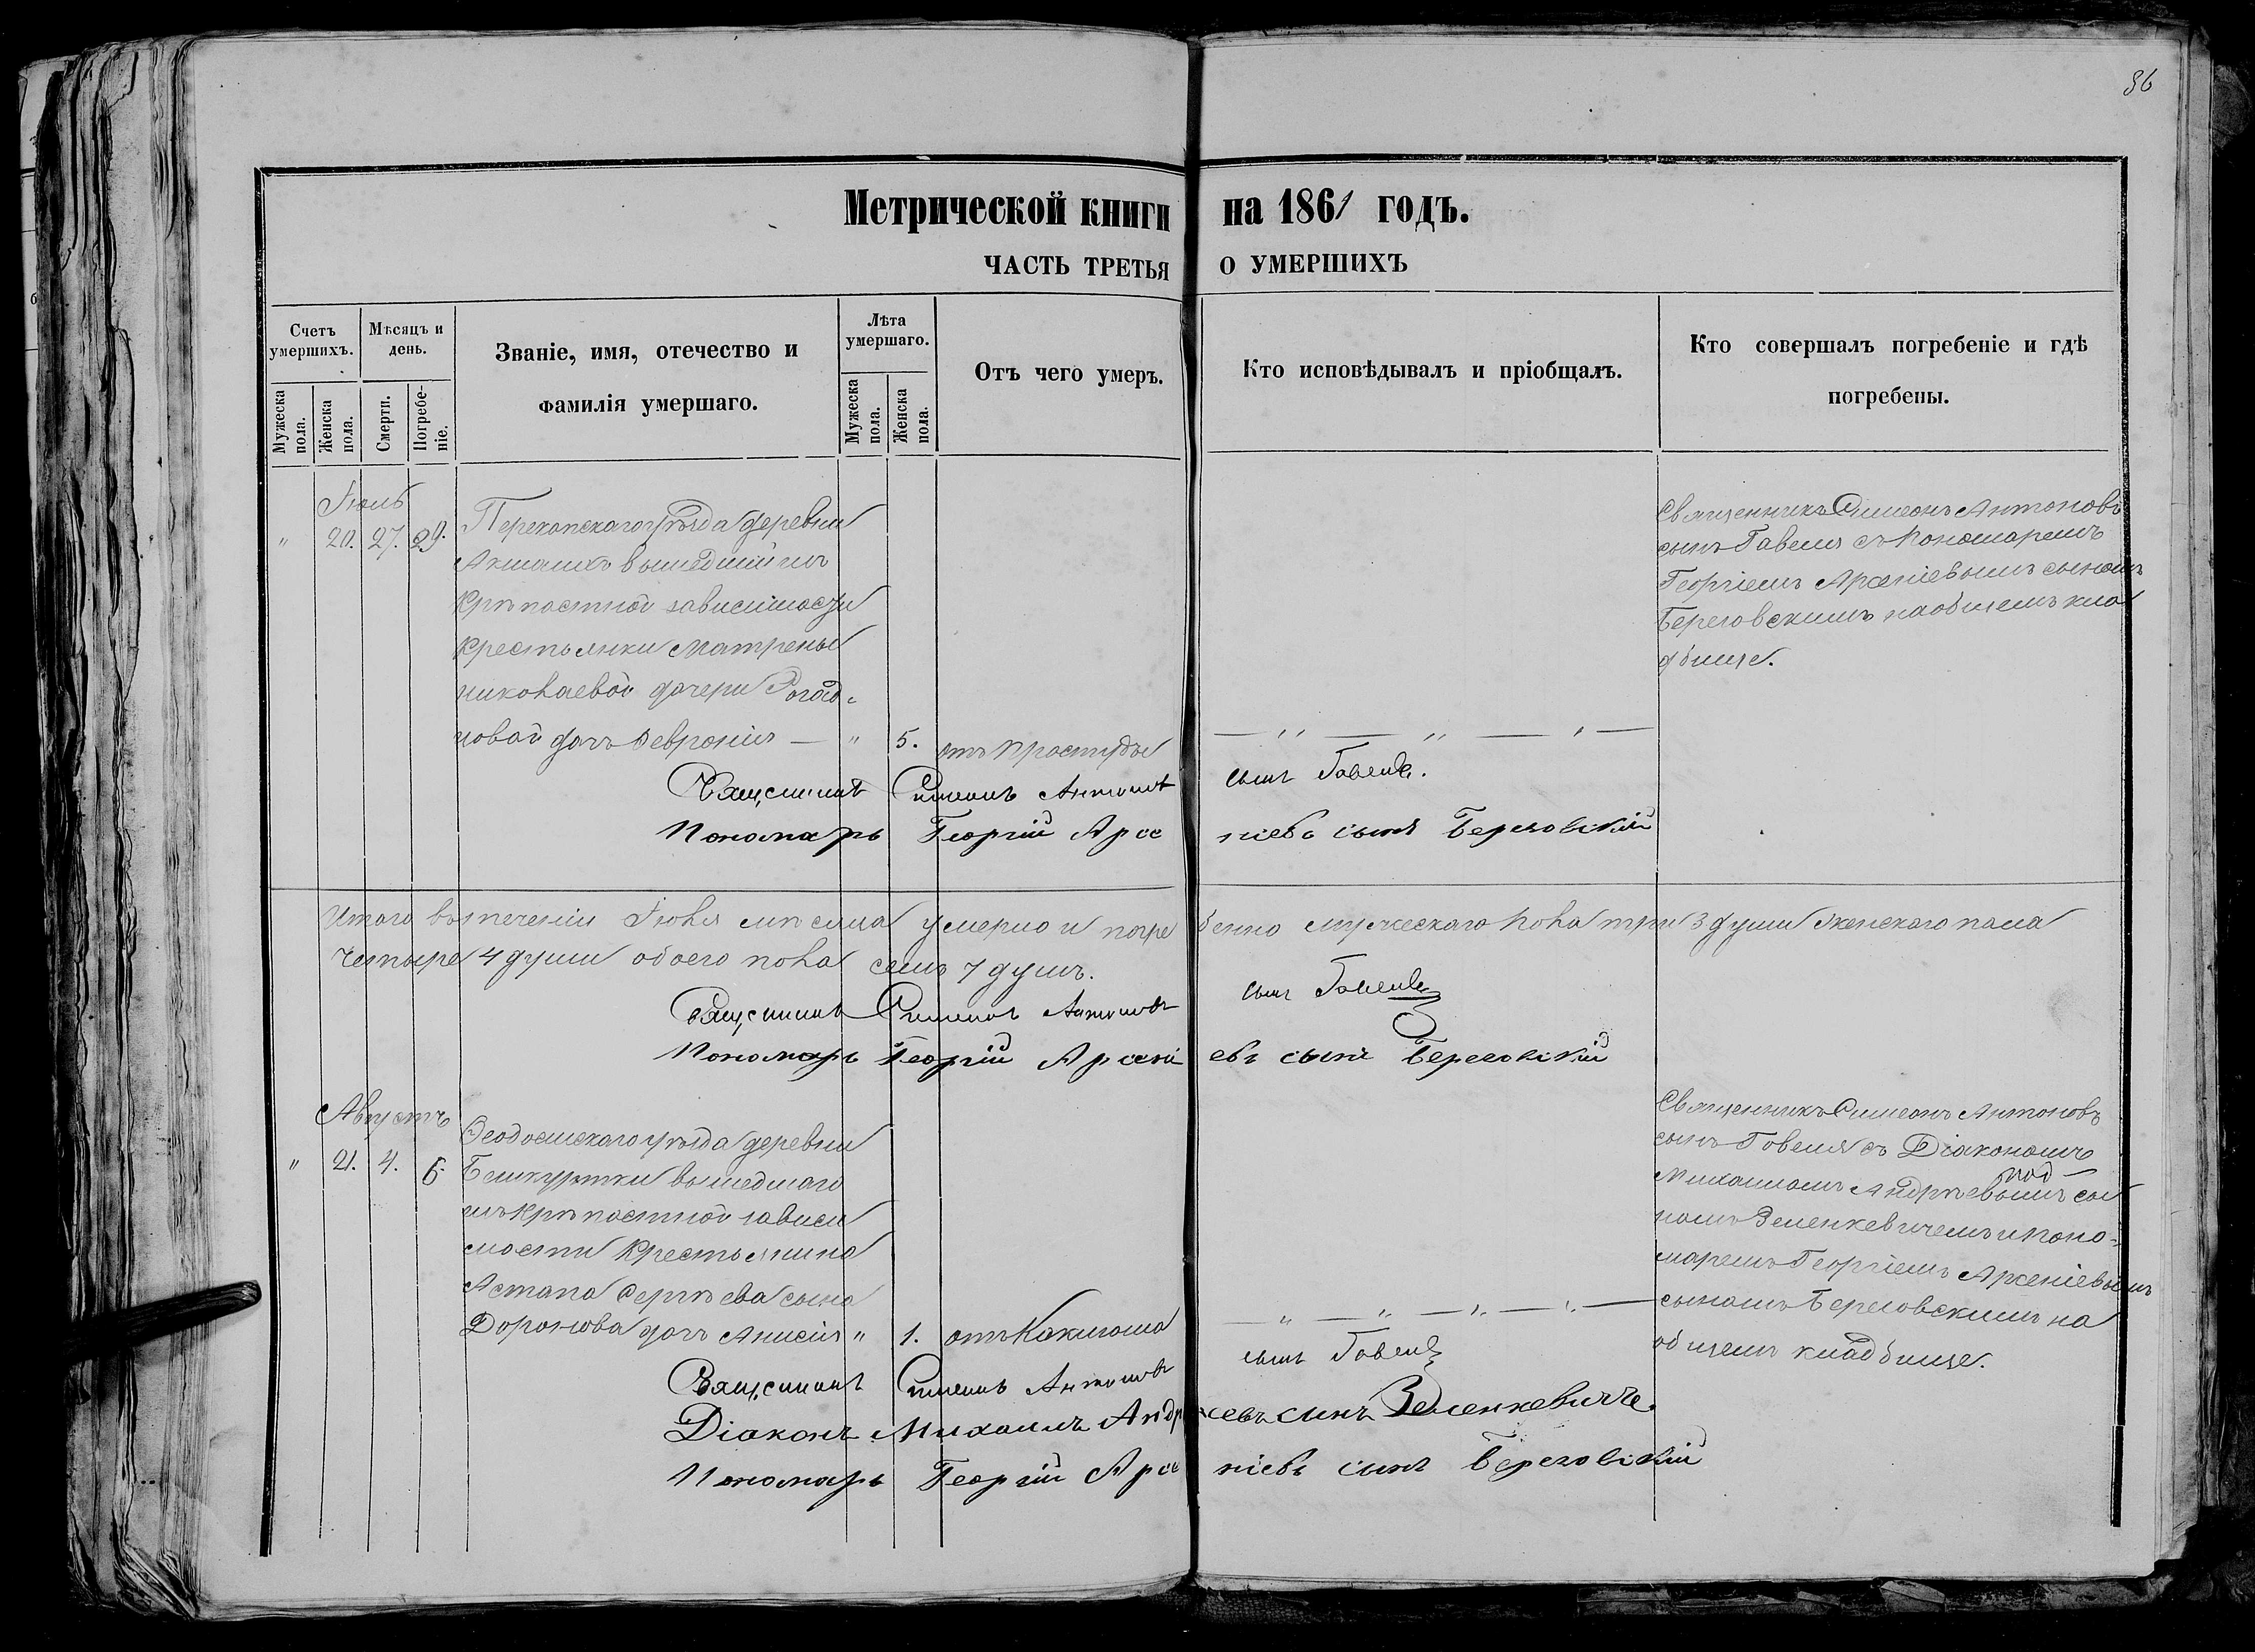 86
Метрической книги на 1861 годъ.
ЧАСТЬ ТРЕТЬЯ О УМЕРШИХЪ
Счетъ умершихъ.
Мужеска пола.
Женска пола.
Мѣсяцъ и день.
Смерти.
Погребеніе.
Званіе, имя, отечество и
фамилія умершаго.
Лѣта умершаго.
Мужеска пола.
Женска пола.
Отъ чего умеръ.
Кто исповѣдывалъ и пріобщалъ.
Кто совершалъ погребеніе и гдѣ
погребены.
Іюль
" 20. 27. 29. Перекопскаго уѣзда деревни
вышедшій изъ
крѣпостной зависимости
крестьянки Матрены
Николаевой дочери
новой дочь Февронія — " 5. отъ простуды
— " — " — " —
Священникъ Симеонъ Антоновъ
сынъ Гавеля съ Пономаремъ
Георгіемъ Арсеніевымъ сыномъ
Береговскимъ на общемъ кла
дбище.
Священникъ Симеонъ Антоновъ сынъ Гавеля.
Пономарь Георгій Арсеніевъ сынъ Береговскій
Итого въ теченіи Іюля мѣсяца умерло и погребенно мужескаго пола три 3 души женскаго пола
четыре 4 души обоего пола семь 7 душъ.
Священникъ Симеонъ Антоновъ сынъ Гавеля
Пономарь Георгій Арсеніевъ сынъ Береговскій
Августъ
" 21. 4. 6. Феодосійскаго уѣзда деревни
Бешкуртки вышедшаго
изъ крѣпостной зависи
мости крестьянина
Астапа Сергѣева сына
Доронова дочь Анисія " 1. отъ Коклюша
— " — " — " — " —
Священникъ Симеонъ Антоновъ
сынъ Говеля съ Діакономъ
Михаиломъ Андрѣевымъ сы
номъ Зеленкевичемъ и Поно-
маремъ Георгіемъ Арсеніевымъ
сыномъ Береговскимъ на
общемъ кладбище.
Священникъ Симеонъ Антоновъ сынъ Гавеля
Діаконъ Михаилъ Андреевъ сынъ Зеленкевичъ.
Пономарь Георгій Арсеніевъ сынъ Береговскій